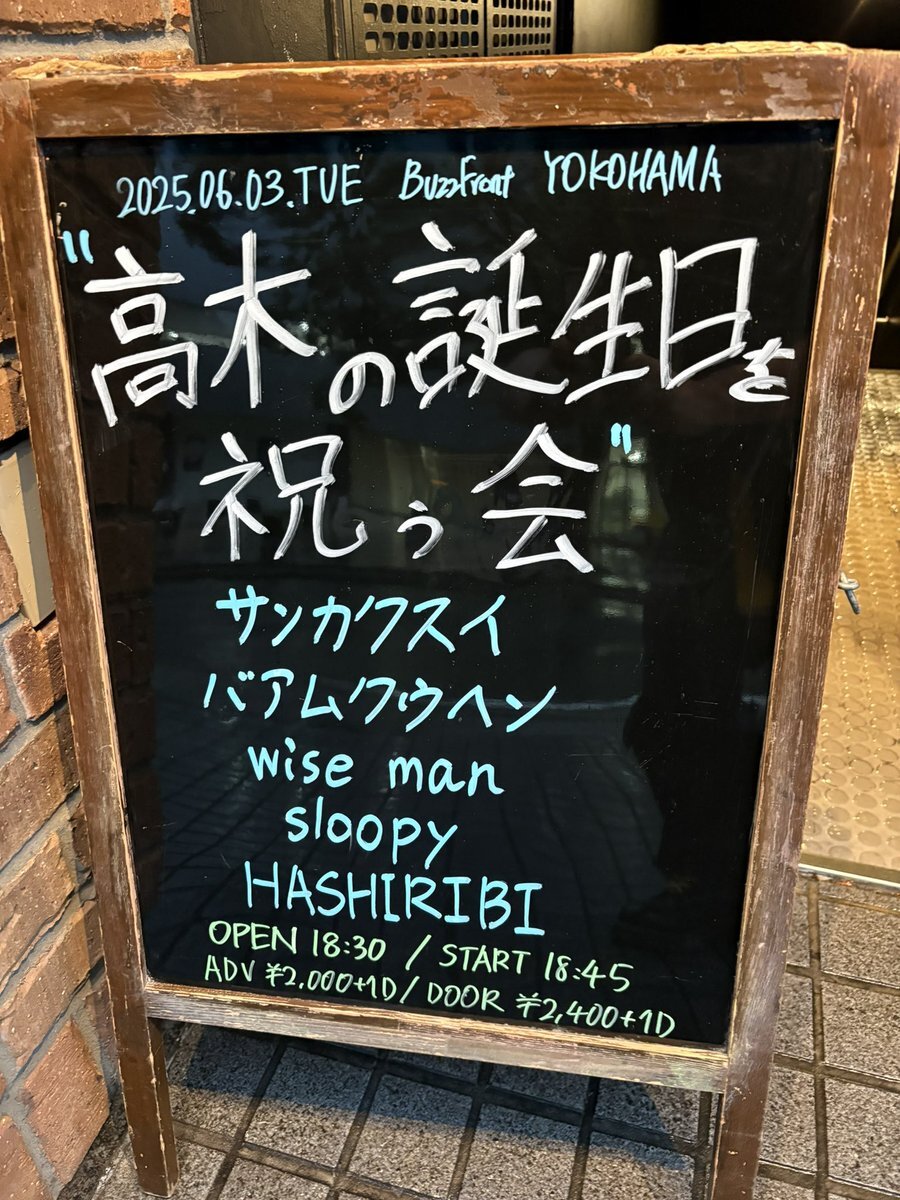 2025.06.03.TUE BuzzFront YOKOHAMA
"高木の誕生日を
祝う会"
サンカクスイ
バアムクウヘン
wise man
sloopy
HASHIRIBI
OPEN 18:30 / START 18:45
ADV ¥2,000+1D / DOOR ¥2,400+1D